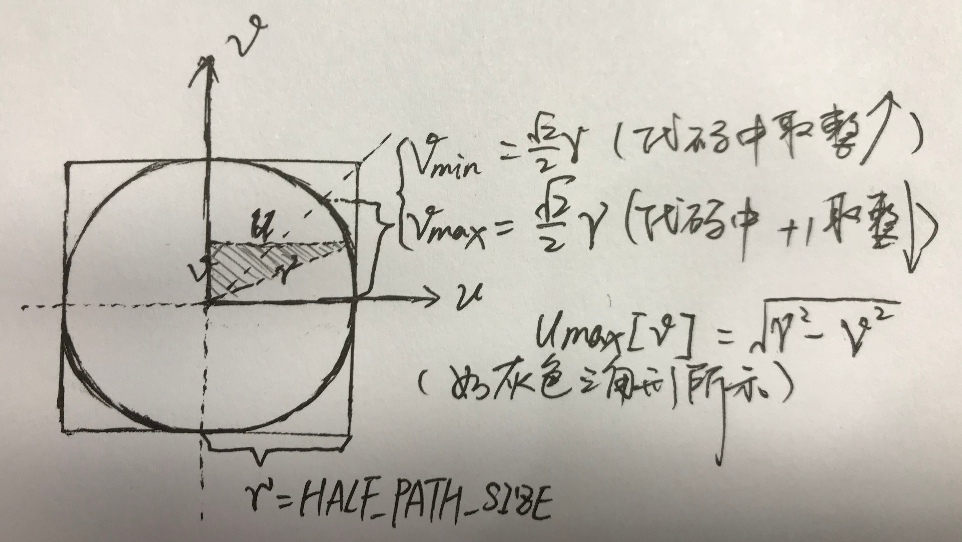 v
v_min = √2/2 r (代码中取整↑)
v_max = √2/2 r (代码中 +1 取整↓)
u
v
r
u
u_max[v] = √(r² - v²)
(如灰色三角形所示。)
r = HALF_PATH_SIZE